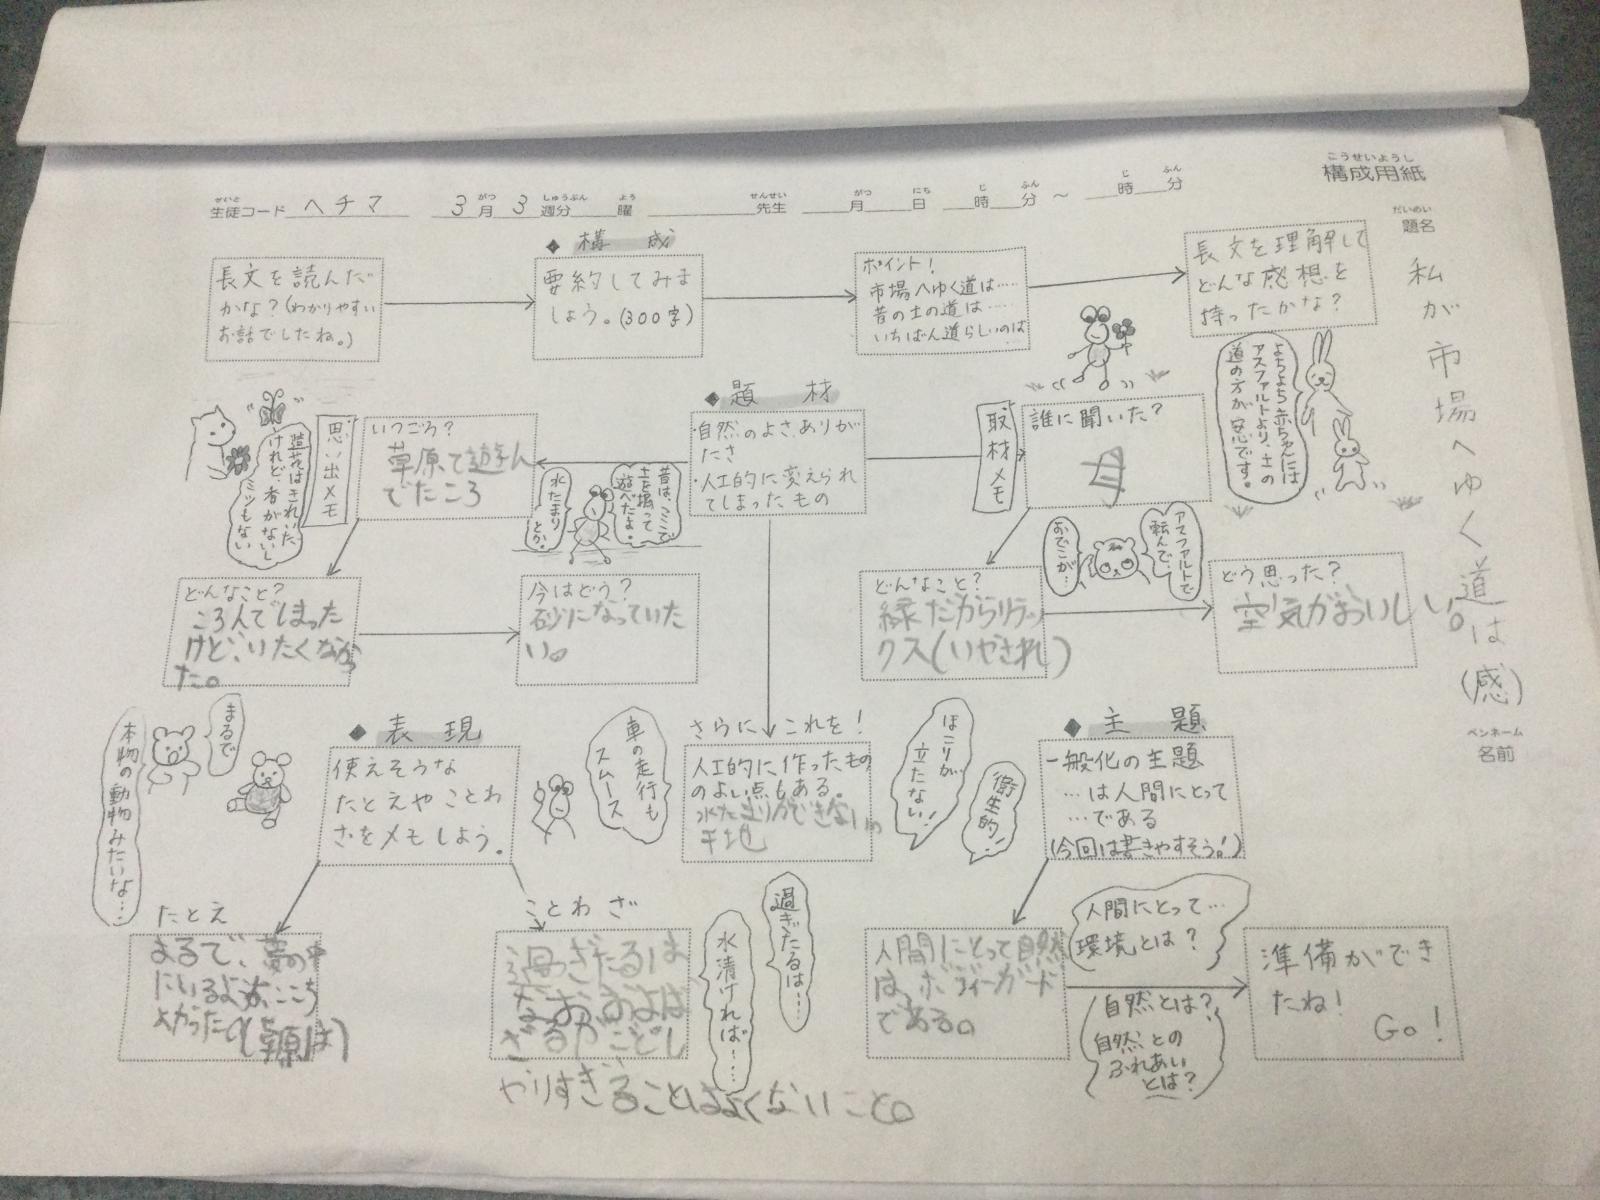 構成用紙
生徒コード ヘチマ 3月3週分 曜 先生 月 日 時 分 ～ 時 分
題名
私が市場へゆく道は(感)
ペンネーム
名前
◆構成
長文を読んだ
かな？(わかりやすい
お話でしたね。)
要約してみま
しょう。(300字)
ポイント！
市場へゆく道は……
昔の土の道は……
いちばん道らしいのは
長文を理解して
どんな感想を
持ったかな？
よちよち赤ちゃんには
アスファルトより、土の
道の方が安心です。
◆題材
・自然のよさ、ありが
たさ
・人工的に変えられ
てしまったもの
思い出メモ
いつごろ？
草原で遊ん
でたころ
造花はきれいだ
けれど、香がないし
ミツもない
昔は、ここで
土を掘って
遊べたよ。
水たまり
とか。
どんなこと？
ころんでしまった
けど、いたくなかっ
た。
今はどう？
砂になっていた
い。
取材メモ
誰に聞いた？
母
アスファルトで
転んで、
おでこが…
どんなこと？
緑だからリラッ
クス(いやされ)
どう思った？
空気がおいしい。
さらにこれを！
人工的に作ったもの
のよい点もある。
水たまりができない
平地
車の走行も
スムース
ほこりが
立たない！
衛生的！
◆表現
使えそうな
たとえやことわ
ざをメモしよう。
まるで
本物の動物みたいな…
たとえ
まるで、夢の中
にいるよな、ここち
よかった。(草原は)
ことわざ
過ぎたるは
なおおよば
ざるがごとし
やりすぎることはよくないこと。
過ぎたるは…
水清ければ…
◆主題
一般化の主題
…は人間にとって
…である
(今回は書きやすそう！)
人間にとって自然
は、ボディーガード
である。
人間にとって…
環境とは？
自然とは？
自然との
ふれあい
とは？
準備ができ
たね！
Go！